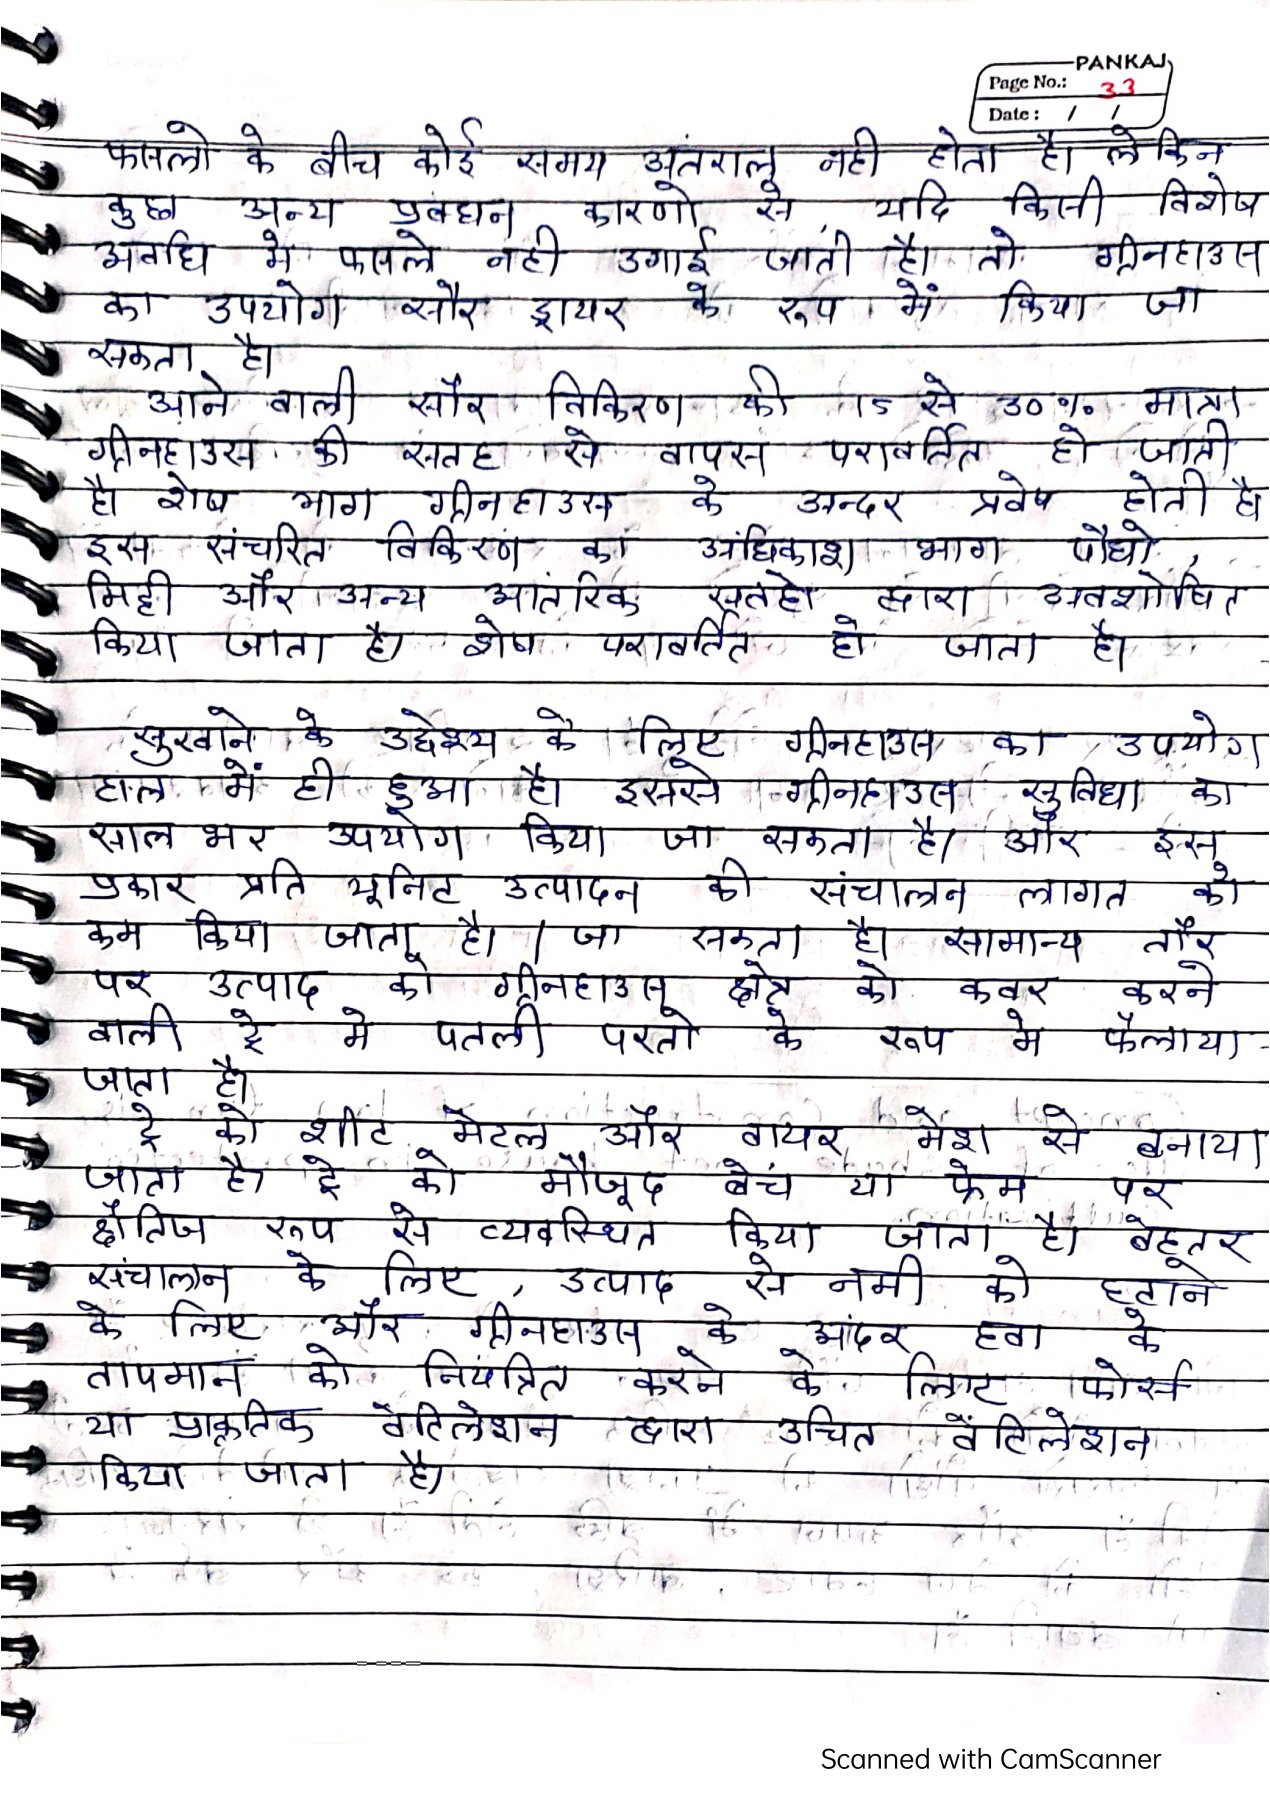 PANKAJ
Page No.: 33
Date: / /
फसलो के बीच कोई समय अंतराल नही होता है। लेकिन
कुछ अन्य प्रबंधन कारणो से, यदि किसी विशेष
अवधि मे फसले नही उगाई जाती है। तो ग्रीनहाउस
का उपयोग सौर ड्रायर के रूप में किया जा
सकता है।
आने वाली सौर विकिरण की 15 से 30% मात्रा
ग्रीनहाउस की सतह से वापस परावर्तित हो जाती
है। शेष भाग ग्रीनहाउस के अन्दर प्रवेष होती है।
इस संचरित विकिरण का अधिकाश भाग पौधो,
मिट्टी और अन्य आंतरिक सतहो द्वारा अवशोषित
किया जाता है। शेष परावर्तित हो जाता है।
सुखाने के उद्देश्य के लिए ग्रीनहाउस का उपयोग
हाल में ही हुआ है। इससे ग्रीनहाउस सुविधा का
साल भर उपयोग किया जा सकता है। और इस
प्रकार प्रति यूनिट उत्पादन की संचालन लागत को
कम किया जाता है। / जा सकता है। सामान्य तौर
पर उत्पाद को ग्रीनहाउस क्षेत्र को कवर करने
वाली ट्रे मे पतली परतो के रूप मे फैलाया
जाता है।
ट्रे को शीट मेटल और वायर मेश से बनाया
जाता है। ट्रे को मौजूद बेंच या फ्रेम पर
क्षैतिज रूप से व्यवस्थित किया जाता है। बेहतर
संचालन के लिए, उत्पाद से नमी को हटाने
के लिए और ग्रीनहाउस के अंदर हवा के
तापमान को नियंत्रित करने के लिए फोर्स
या प्राकृतिक वेंटिलेशन द्वारा उचित वेंटिलेशन
किया जाता है।
Scanned with CamScanner